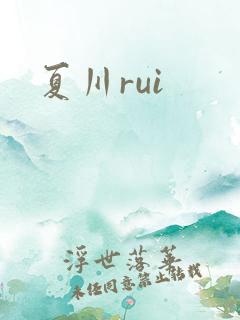 夏川rui
浮世落华
未经同意禁止转载